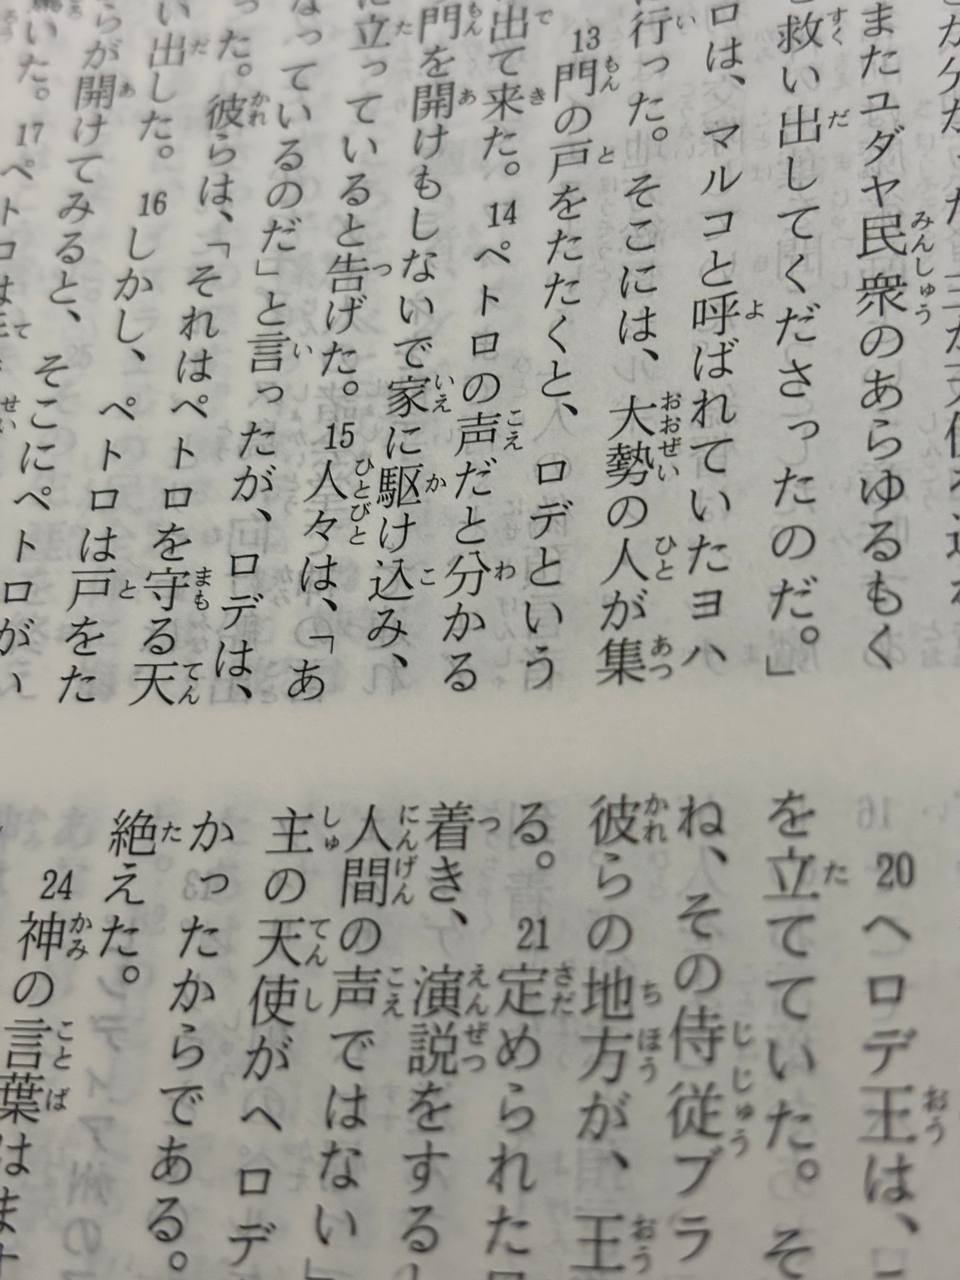 またユダヤ民衆のあらゆるもく
救い出してくださったのだ。」
ロは、マルコと呼ばれていたヨハ
行った。そこには、大勢の人が集
13門の戸をたたくと、ロデという
出て来た。14ペトロの声だと分かる
門を開けもしないで家に駆け込み、
に立っていると告げた。15人々は、「あ
なっているのだ」と言ったが、ロデは、
った。彼らは、「それはペトロを守る天
い出した。16しかし、ペトロは戸をた
らが開けてみると、そこにペトロがい
いた。17ペトロは手で
20ヘロデ王は、
を立てていた。そ
ね、その侍従ブラ
彼らの地方が、王
る。21定められた日
着き、演説をする
人間の声ではない」
主の天使がヘロデ
かったからである。
絶えた。
24神の言葉はます